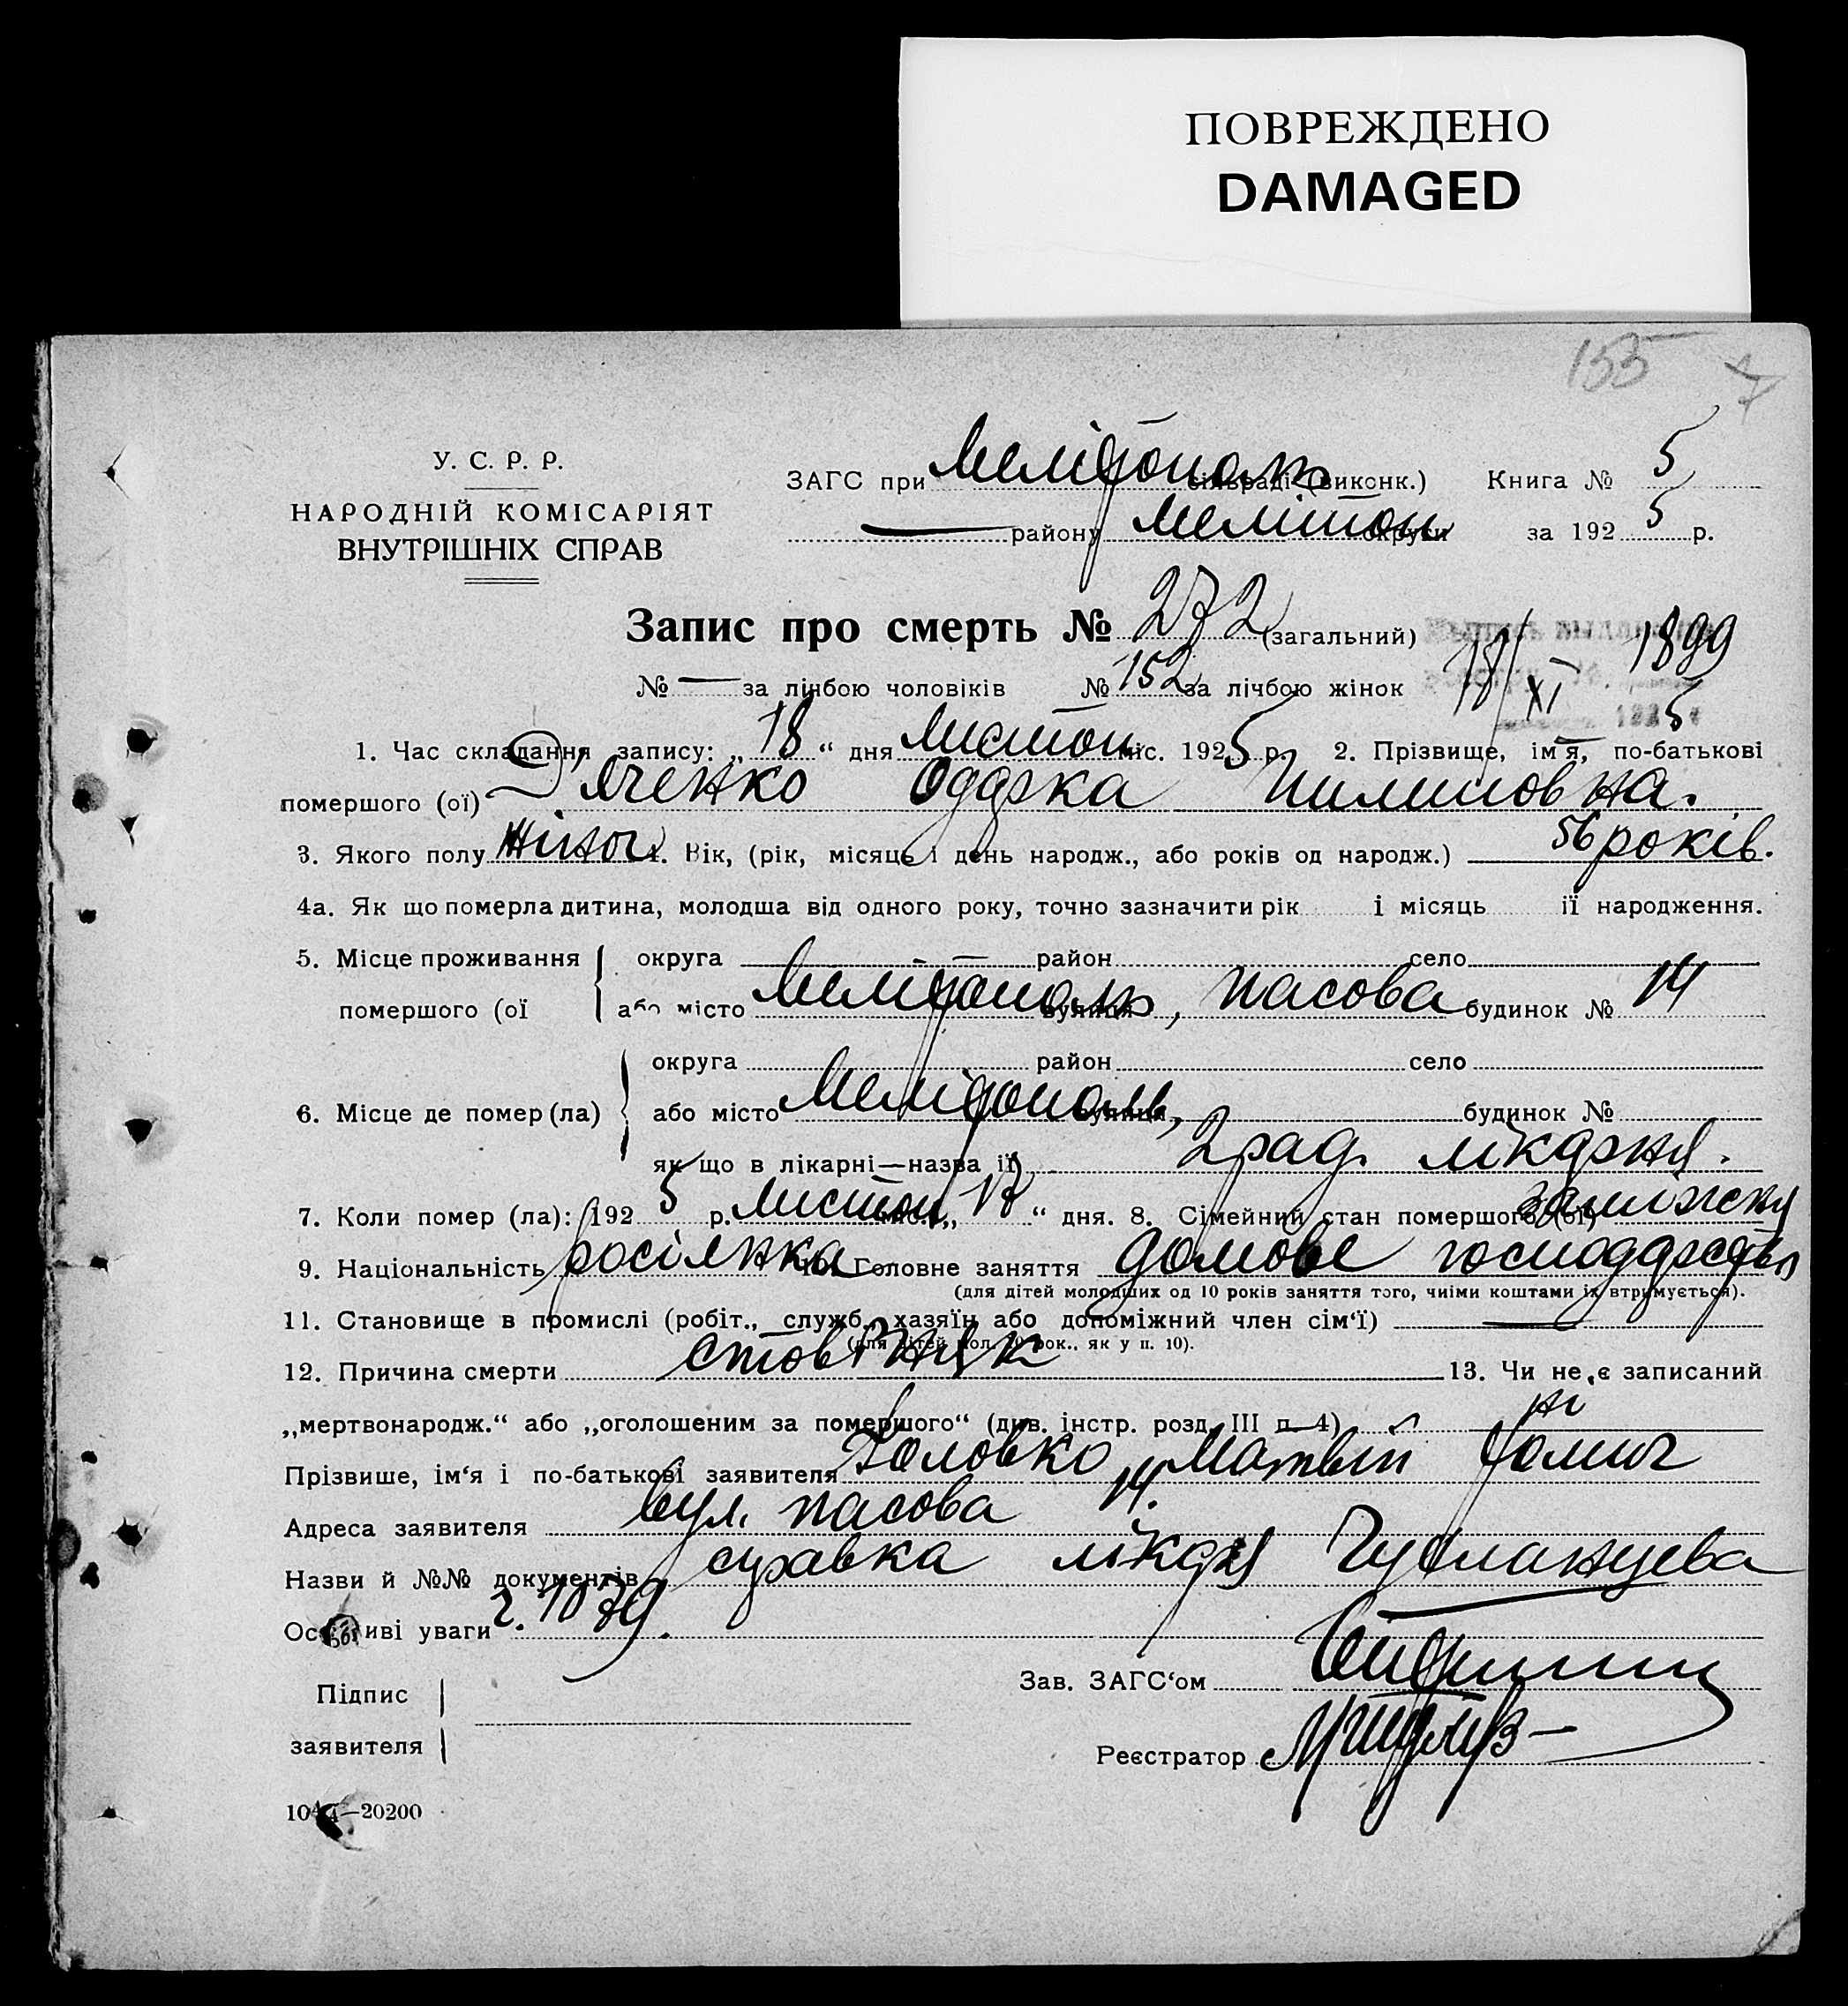 ПОВРЕЖДЕНО
DAMAGED
155
У. С. Р. Р.
НАРОДНІЙ КОМІСАРІЯТ
ВНУТРІШНІХ СПРАВ
ЗАГС при Мелітополь сільраді (виконк.) Книга № 5
— району Мелітоп округи за 1925 р.
Запис про смерть № 272 (загальний)
№ — за лічбою чоловіків № 152 за лічбою жінок 18/XI 1899
5
1. Час складання запису: „18“ дня Листоп міс. 1925 р. 2. Прізвище, ім‘я, по-батькові
помершого (ої) Д'яченко Оддрка Пилиповна.
3. Якого полу жіноч 4. Вік, (рік, місяць і день народж., або років од народж.) 56 років.
4а. Як що померла дитина, молодша від одного року, точно зазначити рік і місяць її народження.
5. Місце проживання округа район село
помершого (ої або місто Мелітополь, вулиця Пасова будинок № 14
округа район село
6. Місце де помер (ла) або місто Мелітополь, вулиця будинок №
як що в лікарні—назва її 2 рад. лікдрня.
7. Коли помер (ла): 1925 р. Листоп міс. „ “ дня. 8. Сімейний стан помершого (ої) заміжску
9. Національність росіянка 10. Головне заняття домове господдрство
(для дітей молодших од 10 років заняття того, чиїми коштами їх втримується).
11. Становище в промислі (робіт., служб., хазяїн або допоміжний член сім‘ї) —
(для дітей мол. 10 рок., як у п. 10).
12. Причина смерти 13. Чи не є записаний
„мертвонародж.“ або „оголошеним за помершого“ (див. інстр. розд. III п. 4) ні
Прізвище, ім‘я і по-батькові заявителя Головко Матвій
Адреса заявителя вул. Пасова 14.
Назви й №№ документів справка лікдря
Особливі уваги ч. 1079.
Підпис
заявителя
Зав. ЗАГС‘ом
Реєстратор
—20200